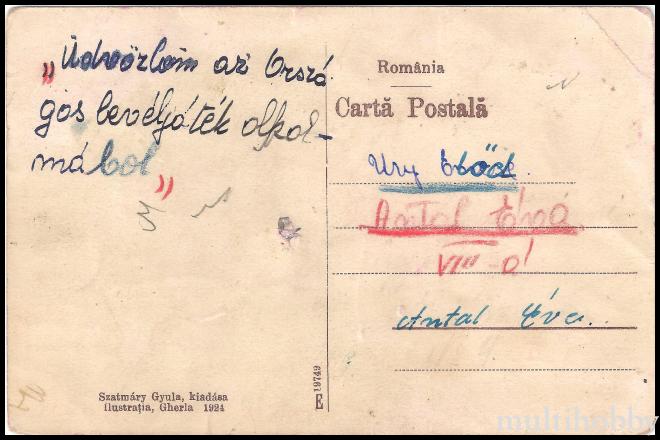 „Üdvözlöm az Orszá
gos levéljáték alkal-
mából
”
România
Cartă Postală
Ury Előd
Antal Éva
VIII-á
Antal Éva.
19749
E
Szatmáry Gyula, kiadása
Ilustrația, Gherla 1924
multihobby